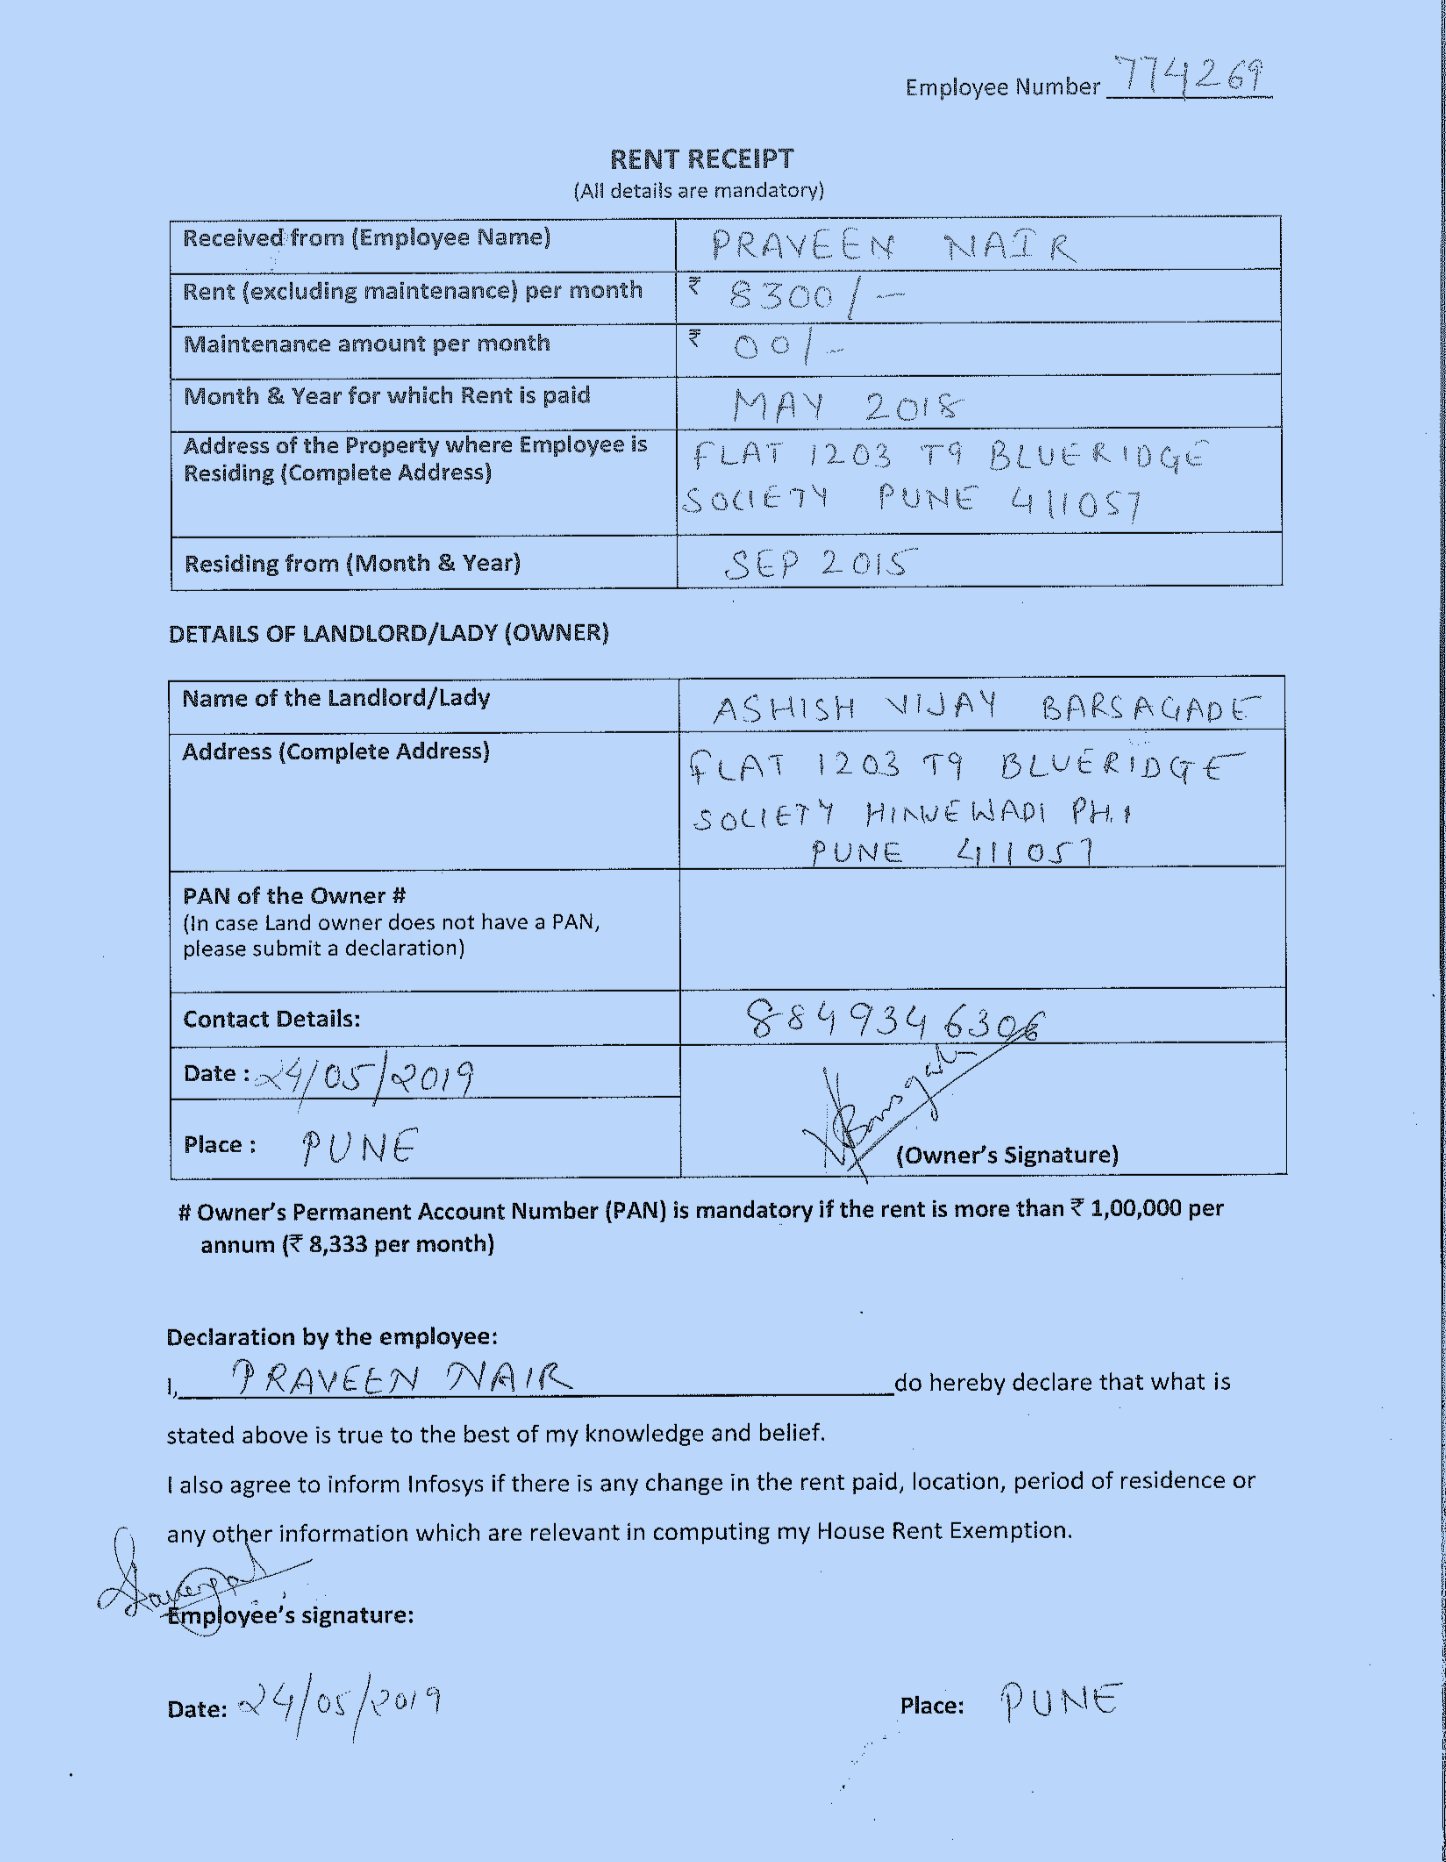 Employee Number 774269
RENT RECEIPT
(All details are mandatory)
Received from (Employee Name) PRAVEEN NAIR
Rent (excluding maintenance) per month ₹ 8300/-
Maintenance amount per month ₹ 00/-
Month & Year for which Rent is paid MAY 2018
Address of the Property where Employee is FLAT 1203 T9 BLUERIDGE
Residing (Complete Address) SOCIETY PUNE 411057
Residing from (Month & Year) SEP 2015
DETAILS OF LANDLORD/LADY (OWNER)
Name of the Landlord/Lady ASHISH VIJAY BARSAGADE
Address (Complete Address) FLAT 1203 T9 BLUERIDGE
SOCIETY HINJEWADI PH.1
PUNE 411057
PAN of the Owner #
(In case Land owner does not have a PAN,
please submit a declaration)
Contact Details: 8849346306
Date : 24/05/2019
Place : PUNE
(Owner's Signature)
# Owner's Permanent Account Number (PAN) is mandatory if the rent is more than ₹ 1,00,000 per
annum (₹ 8,333 per month)
Declaration by the employee:
I, PRAVEEN NAIR do hereby declare that what is
stated above is true to the best of my knowledge and belief.
I also agree to inform Infosys if there is any change in the rent paid, location, period of residence or
any other information which are relevant in computing my House Rent Exemption.
Employee's signature:
Date: 24/05/2019 Place: PUNE